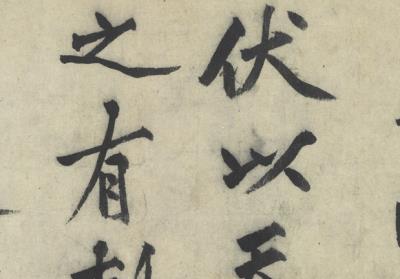 伏以天
之有